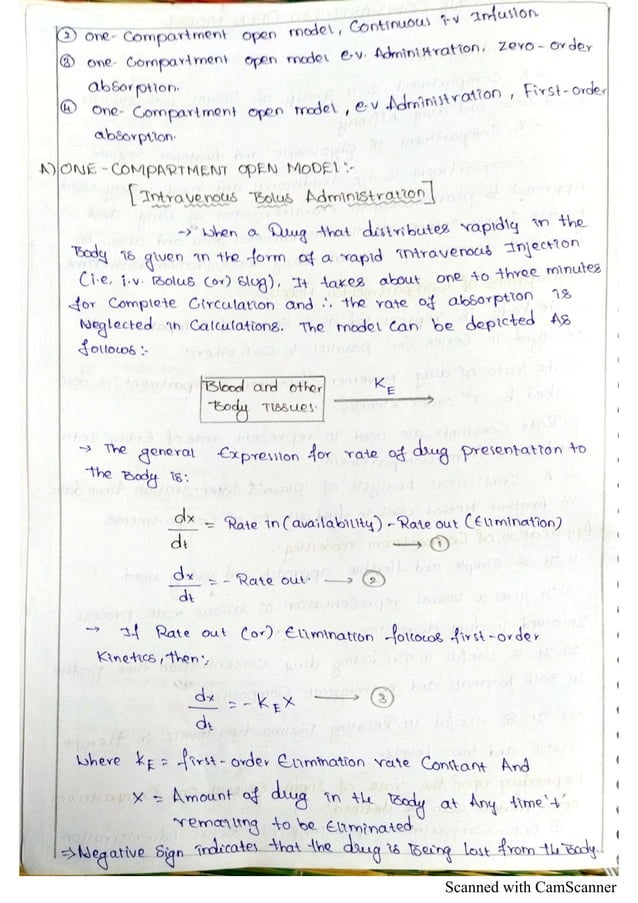 ② one-Compartment open model, Continuous i-v Infusion
③ one-Compartment open model e.v. Administration, zero-order
absorption.
④ one-Compartment open model, e.v Administration, First-order
absorption.
A) ONE-COMPARTMENT OPEN MODEL:-
[Intravenous Bolus Administration]
→ When a Drug that distributes rapidly in the
Body is given in the form of a rapid intravenous Injection
(i.e, i.v. Bolus (or) slug). It takes about one to three minutes
for Complete Circulation and ∴ the rate of absorption is
Neglected in Calculations. The model can be depicted As
follows:-
Blood and other
Body Tissues.
KE
→ The general Expression for rate of drug presentation to
the Body is:
dx/dt = Rate in (availability) - Rate out (Elimination)
→ ①
dx/dt = - Rate out. → ②
→ If Rate out (or) Elimination follows first-order
Kinetics, then:
dx/dt = - KE X → ③
where KE = first-order Elimination rate Constant And
X = Amount of drug in the Body at Any time 't'
remaning to be Eliminated
⇒ Negative Sign indicates that the drug is Being lost from the Body.
Scanned with CamScanner